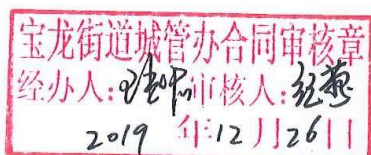 宝龙街道城管办合同审核章
经办人:审核人:
2019年12月26日